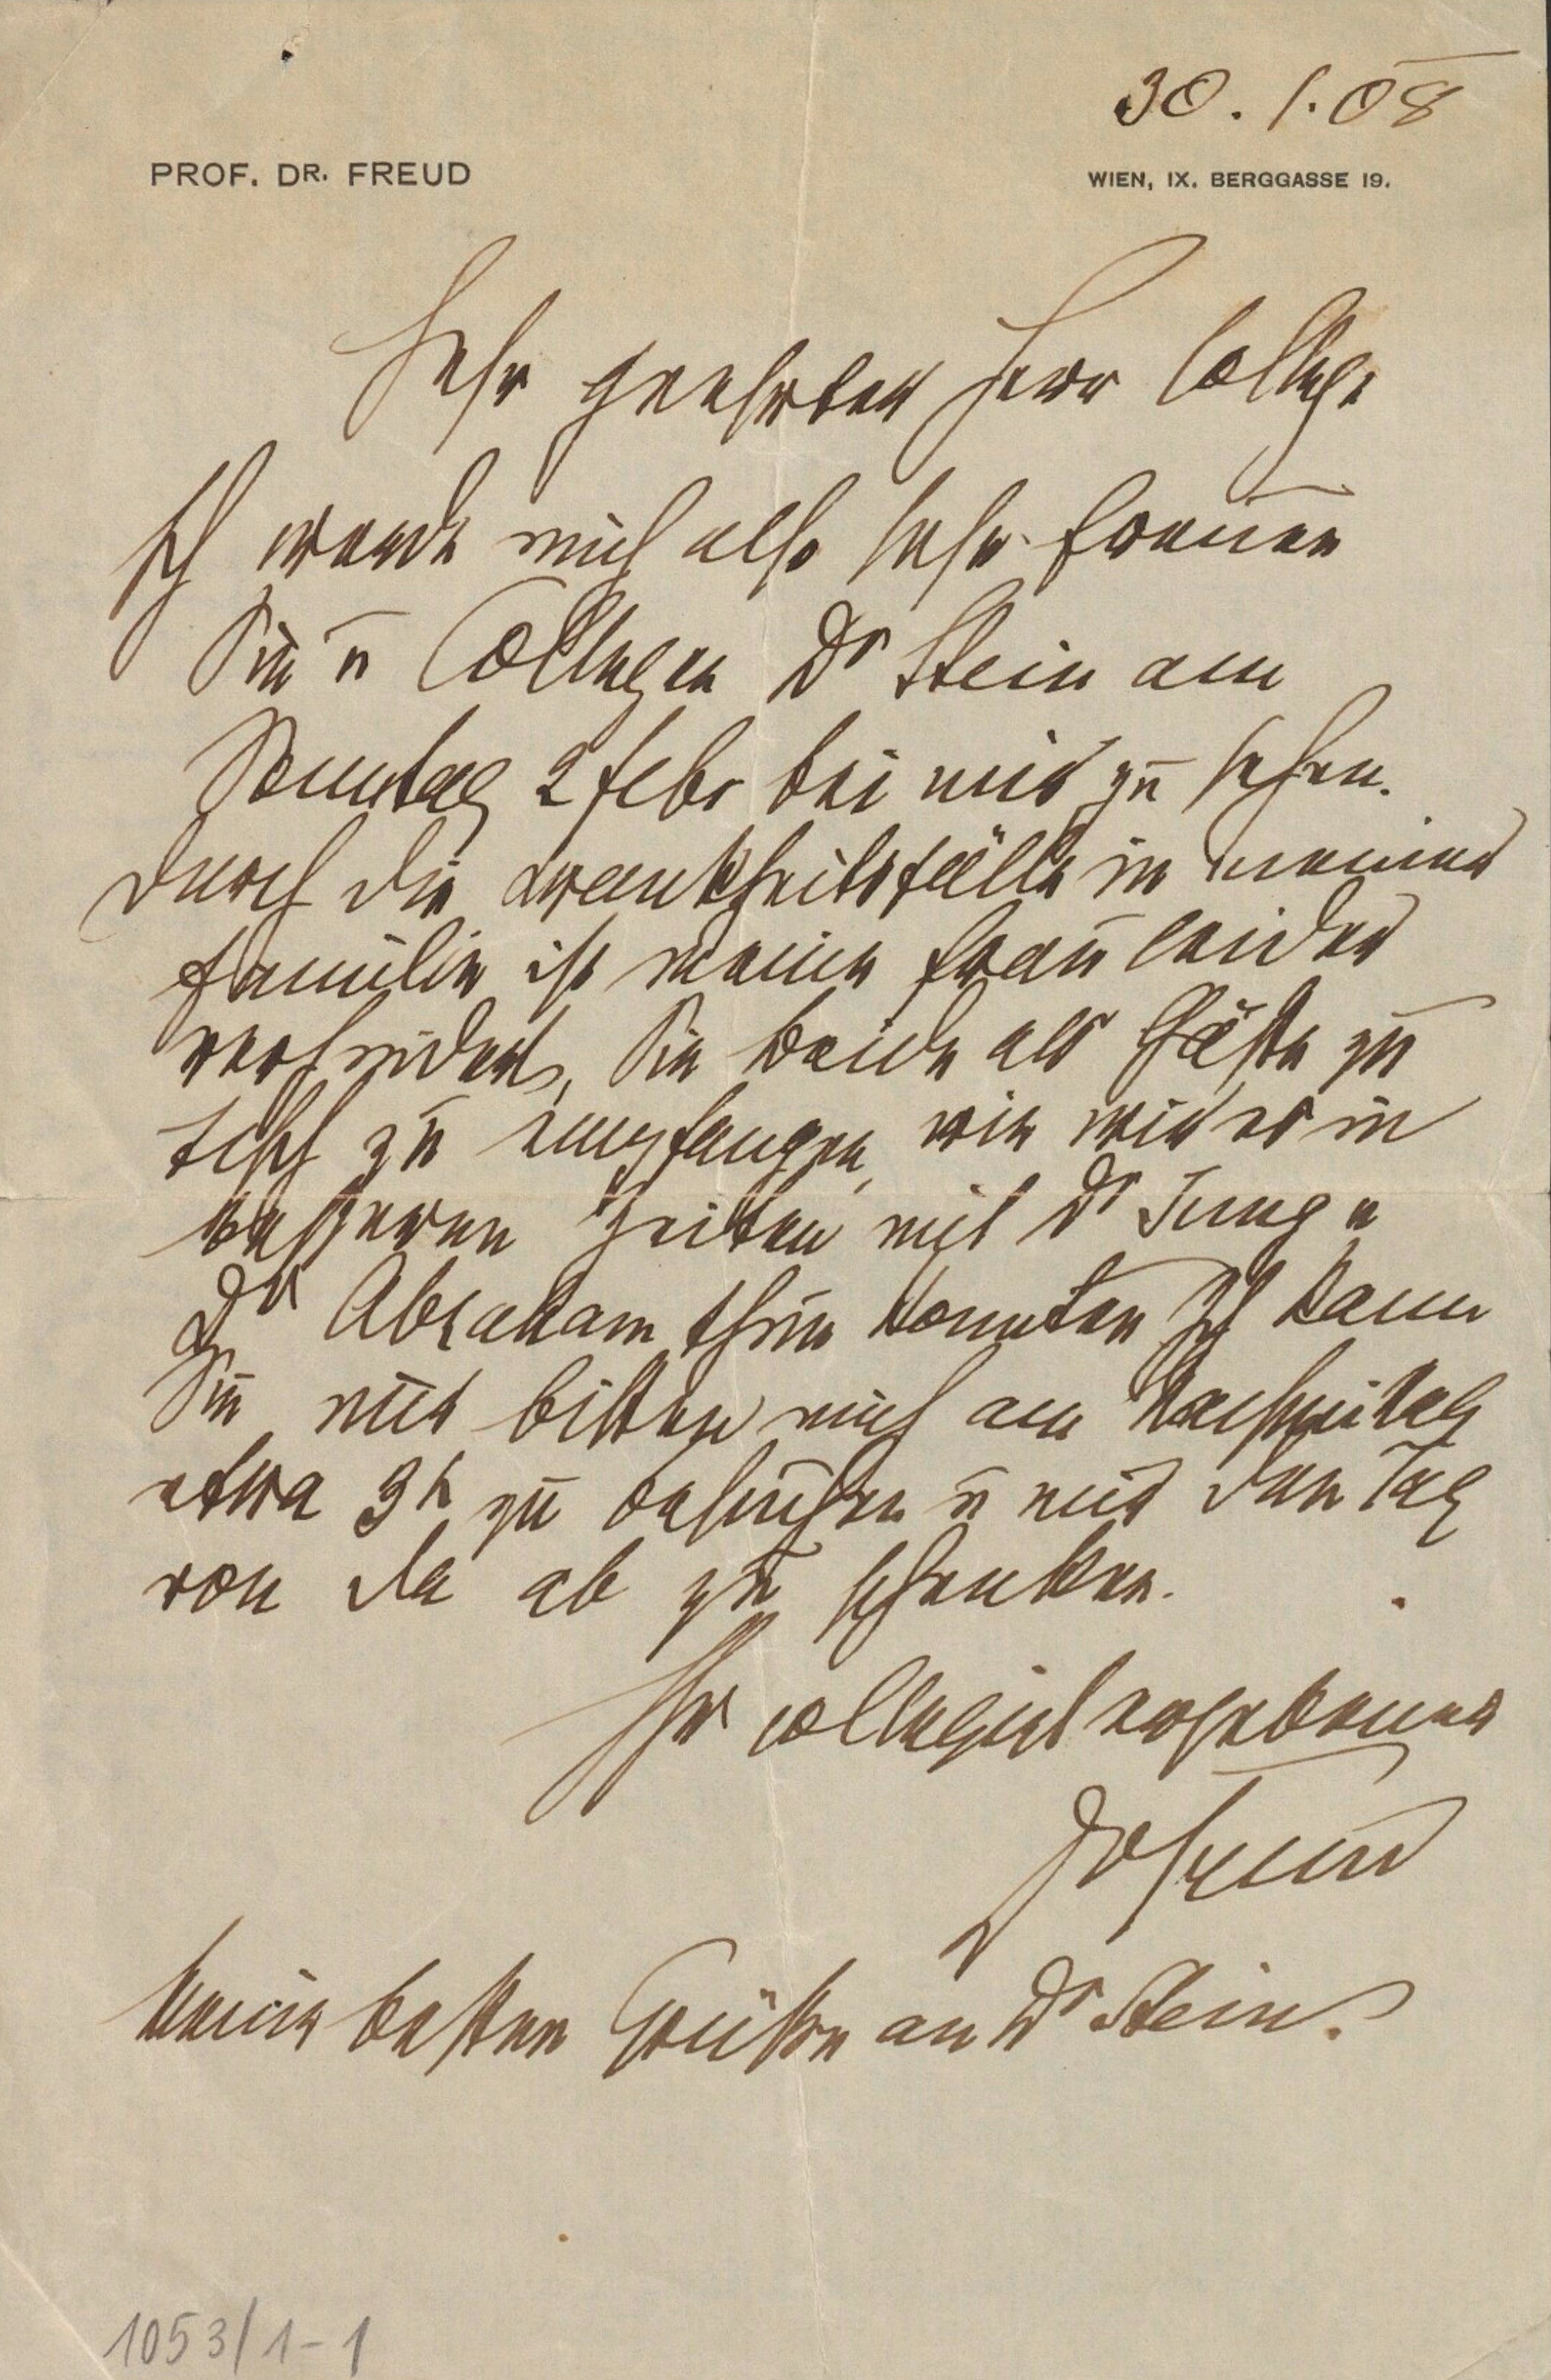 30. 1. 08
PROF. DR. FREUD
WIEN, IX. BERGGASSE 19.
Sehr geehrter Herr College
Ich werde mich also sehr freuen
Sie u Collegen Dr Stein am
Sonntag 2 Febr bei mir zu sehen.
Durch die Krankheitsfälle in meiner
Familie ist meine Frau leider
verhindert, Sie beide als Gäste zu
Tisch zu empfangen, wie wir es in
besseren Zeiten mit Dr Jung u
Dr Abraham thun konnten. Ich kann
Sie nur bitten mich am Nachmittag
etwa 3h zu besuchen u mir den Tag
von da ab zu schenken.
Ihr collegial ergebener
Dr Freud
Meine besten Grüße an Dr Stein.
1053/1-1